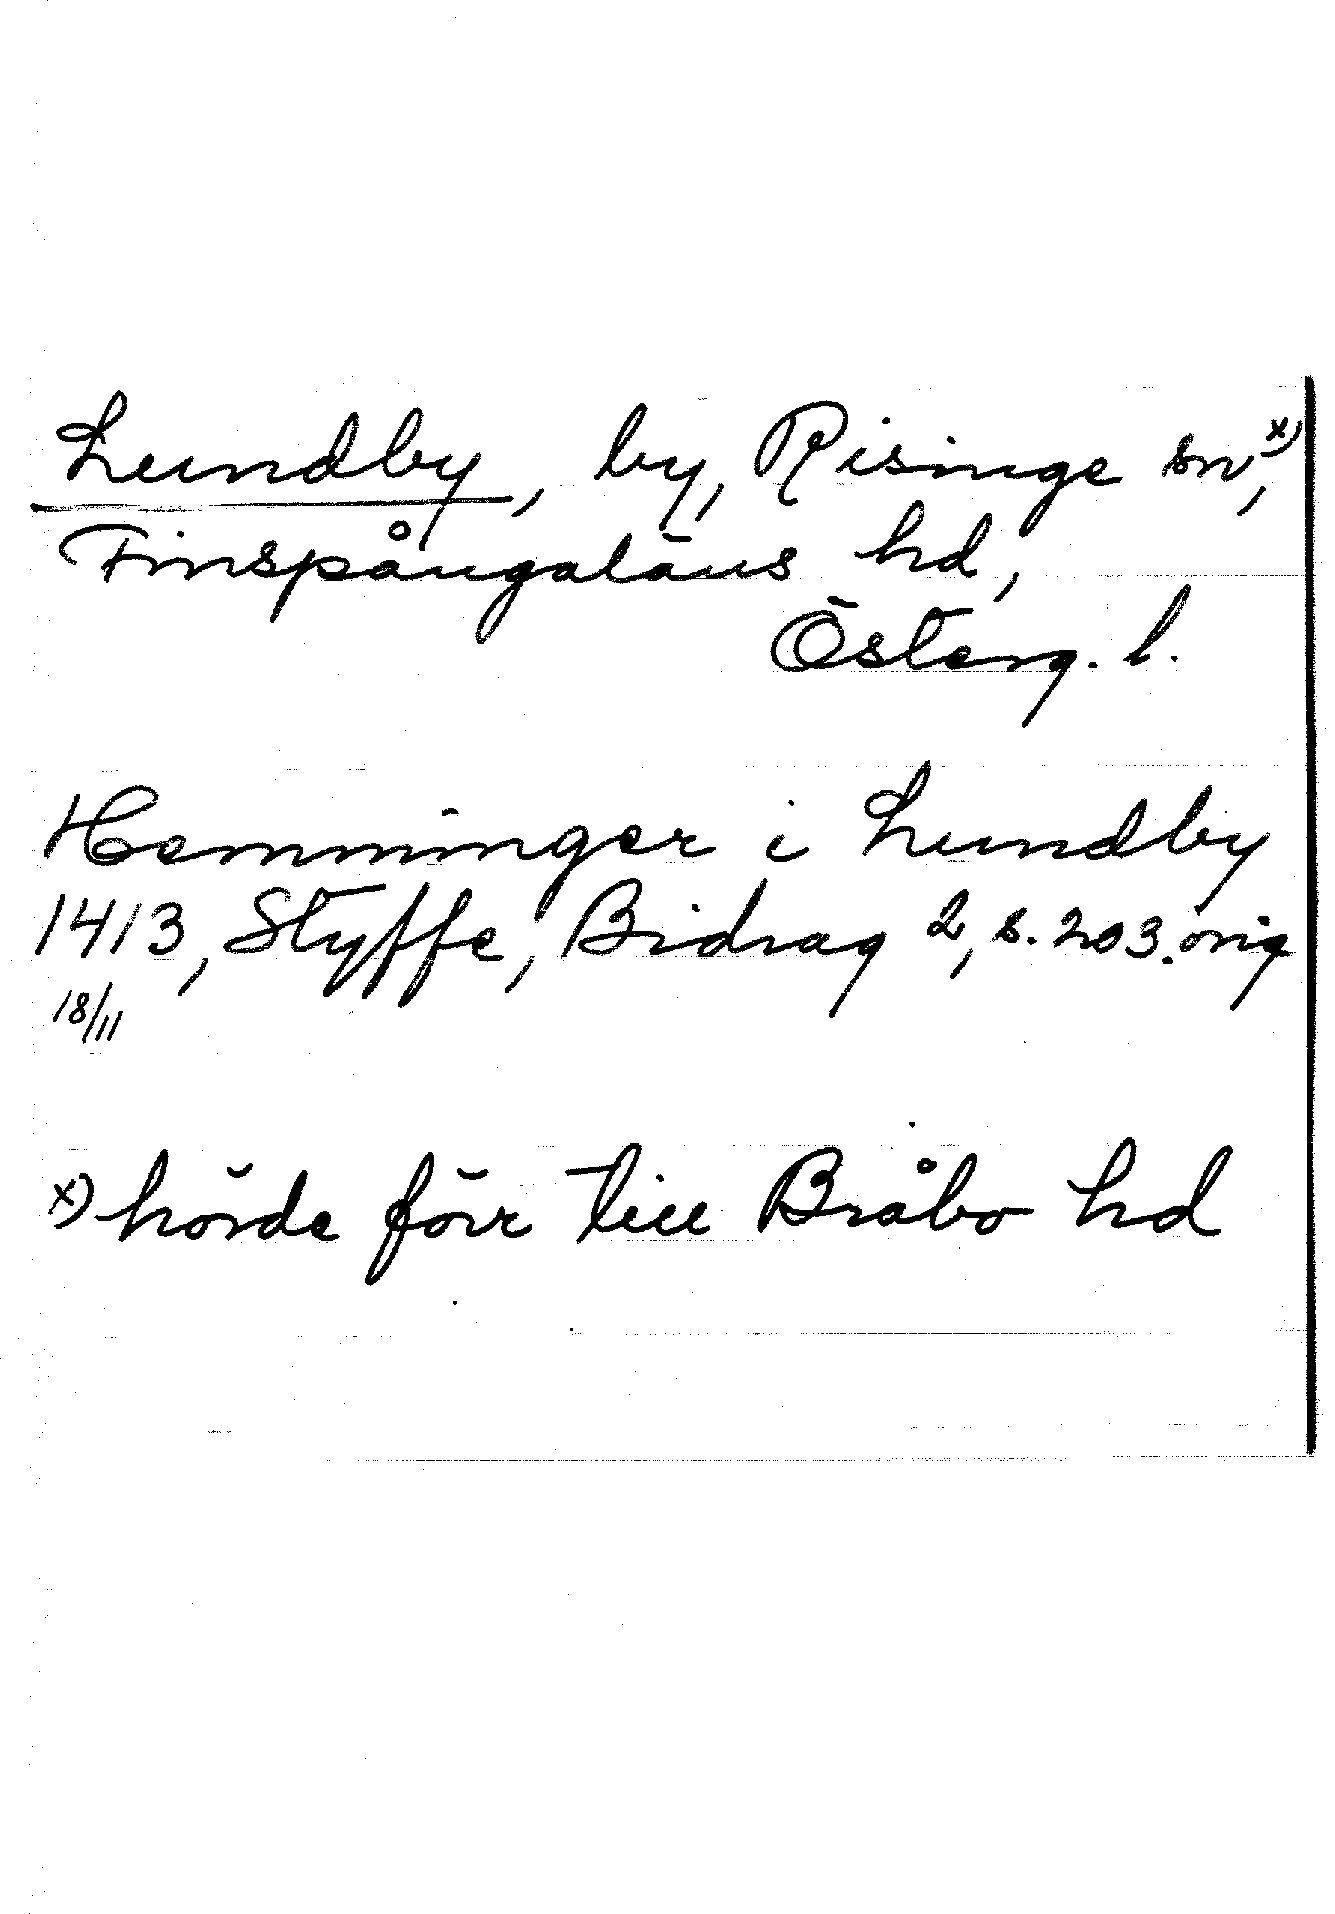 Lundby, by, Risinge sn x),
Finspångaläns hd,
Österg. l.
Hemminger i Lundby
1413, Styffe, Bidrag 2, s. 203. orig
18/11
x) hörde förr till Bråbo hd